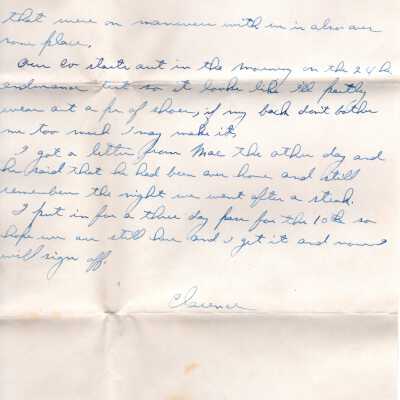 that were on maneuver with in is also over
some place.
Our Co starts out in the morning on the 24 hr
endurance test so it looks like I'll partly
wear out a pr of shoes, if my back don't bother
me too much I may make it.
I got a letter from Mac the other day and
he said that he had been over home and still
remembers the night we went after a steak.
I put in for a three day pass for the 10th so
hope we are still here and I get it and
will sign off.
Clarence